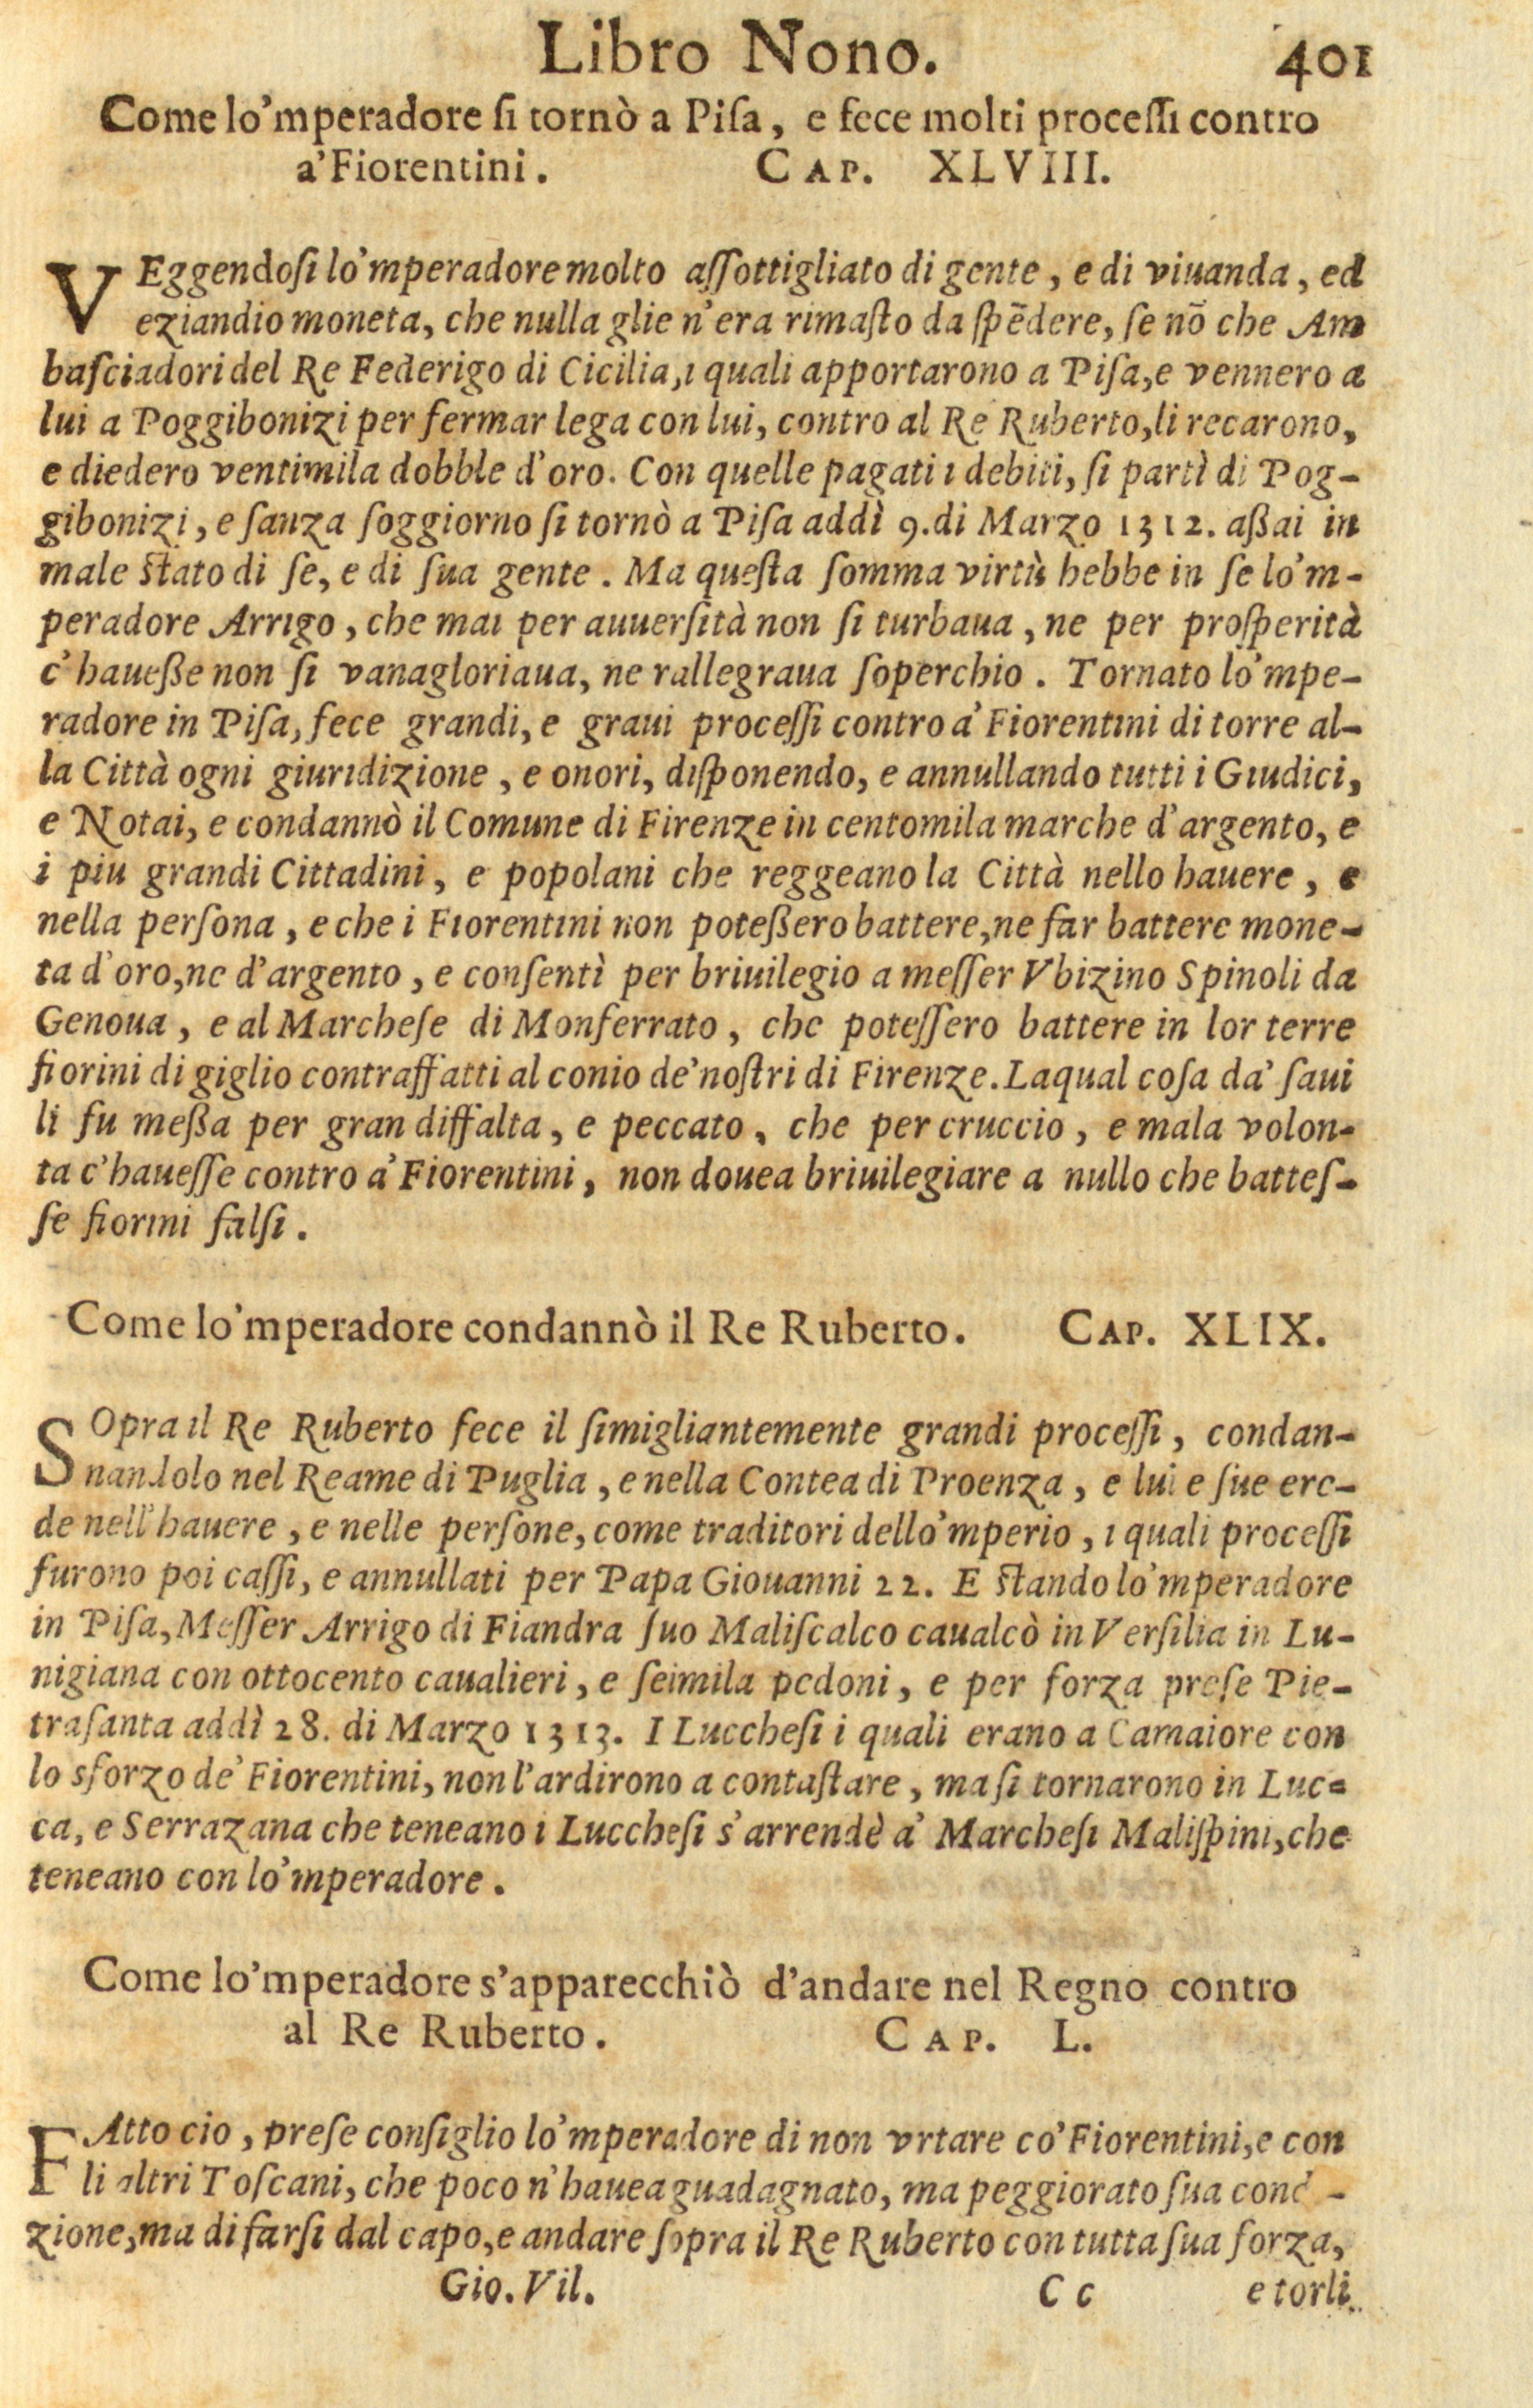 Libro Nono. 401
Come lo'mperadore ſi tornò a Piſa, e fece molti proceſſi contro
a'Fiorentini. CAP. XLVIII.
VEggendoſi lo'mperadore molto aſſottigliato di gente, e di viuanda, ed
eziandio moneta, che nulla glie n'era rimaſto da ſpēdere, ſe nō che Am
baſciadori del Re Federigo di Cicilia, i quali apportarono a Piſa, e vennero a
lui a Poggibonizi per fermar lega con lui, contro al Re Ruberto, li recarono,
e diedero ventimila dobble d'oro. Con quelle pagati i debiti, ſi partì di Pog-
gibonizi, e ſanza ſoggiorno ſi tornò a Piſa addì 9. di Marzo 1312. aßai in
male ſtato di ſe, e di ſua gente. Ma queſta ſomma virtù hebbe in ſe lo'm-
peradore Arrigo, che mai per auuerſità non ſi turbaua, ne per proſperità
c'haueße non ſi vanagloriaua, ne rallegraua ſoperchio. Tornato lo'mpe-
radore in Piſa, fece grandi, e graui proceſſi contro a'Fiorentini di torre al-
la Città ogni giuridizione, e onori, diſponendo, e annullando tutti i Giudici,
e Notai, e condannò il Comune di Firenze in centomila marche d'argento, e
i piu grandi Cittadini, e popolani che reggeano la Città nello hauere, e
nella perſona, e che i Fiorentini non poteßero battere, ne far battere mone-
ta d'oro, ne d'argento, e conſentì per briuilegio a meſſer Vbizino Spinoli da
Genoua, e al Marcheſe di Monferrato, che poteſſero battere in lor terre
fiorini di giglio contraffatti al conio de'noſtri di Firenze. Laqual coſa da' ſaui
li fu meßa per gran diffalta, e peccato, che per cruccio, e mala volon-
ta c'haueſſe contro a'Fiorentini, non douea briuilegiare a nullo che batteſ-
ſe fiorini falſi.
Come lo'mperadore condannò il Re Ruberto. CAP. XLIX.
SOpra il Re Ruberto fece il ſimigliantemente grandi proceſſi, condan-
nandolo nel Reame di Puglia, e nella Contea di Proenza, e lui e ſue ere-
de nell'hauere, e nelle perſone, come traditori dello'mperio, i quali proceſſi
furono poi caſſi, e annullati per Papa Giouanni 22. E ſtando lo'mperadore
in Piſa, Meſſer Arrigo di Fiandra ſuo Maliſcalco caualcò in Verſilia in Lu-
nigiana con ottocento caualieri, e ſeimila pedoni, e per forza preſe Pie-
traſanta addì 28. di Marzo 1313. I Luccheſi i quali erano a Camaiore con
lo sforzo de'Fiorentini, non l'ardirono a contaſtare, ma ſi tornarono in Luc-
ca, e Serrazana che teneano i Luccheſi s'arrendè a' Marcheſi Maliſpini, che
teneano con lo'mperadore.
Come lo'mperadore s'apparecchiò d'andare nel Regno contro
al Re Ruberto. CAP. L.
FAtto cio, preſe conſiglio lo'mperadore di non vrtare co'Fiorentini, e con
li altri Toſcani, che poco n'hauea guadagnato, ma peggiorato ſua
zione, ma di farſi dal capo, e andare ſopra il Re Ruberto con tutta ſua forza,
Gio. Vil. C c e torli